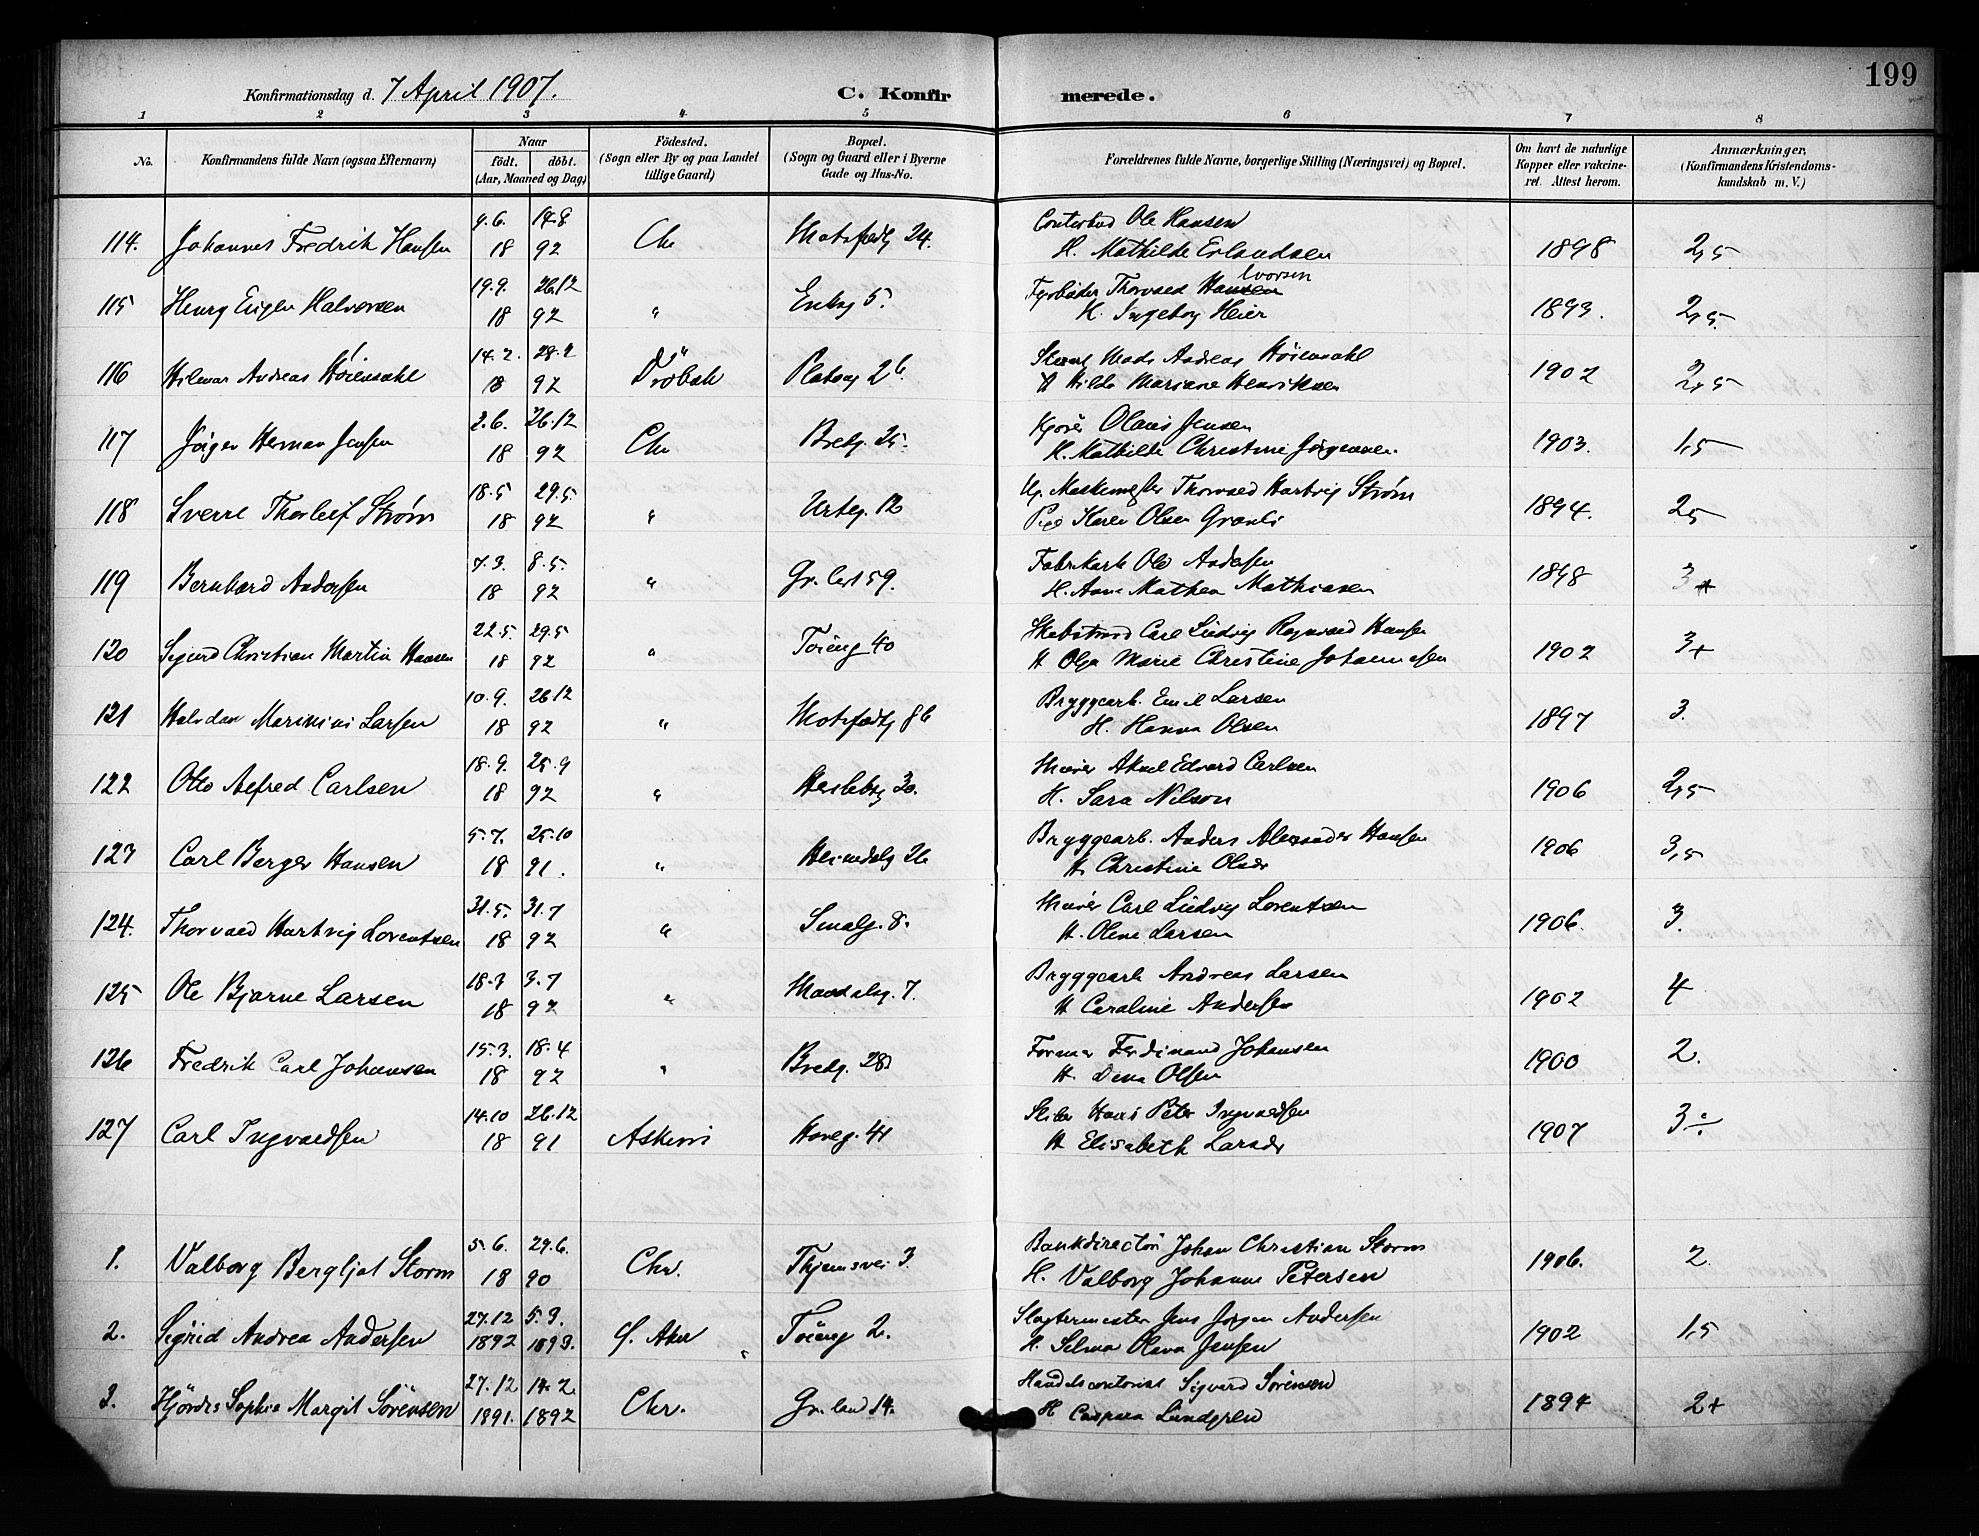 199
Konfirmationsdag d. 7 April 1907.
C. Konfirmerede.
1 2 3 4 5 6 7 8
No.
Konfirmandens fulde Navn (ogsaa Efternavn)
Naar
födt. döbt.
(Aar, Maaned og Dag)
Födested.
(Sogn eller By og paa Landet tillige Gaard)
Bopæl.
(Sogn og Gaard eller i Byerne Gade og Hus-No.
Forældrenes fulde Navne, borgerlige Stilling (Næringsvei) og Bopæl.
Om havt de naturlige Kopper eller vakcineret. Attest herom.
Anmærkninger,
(Konfirmandens Kristendomskundskab m. V.)
114. Johannes Fredrik Hansen 18 92 14.8 Chr 24. Ole Hansen
H. Mathilde Erlandsen 1898 2,5
115 Henry Eugen Halvorsen 19.9. 18 26.12 92 " Enebg 5. Fyrböder Thorvald Halvorsen
H. Ingeborg Heier 1893. 2,5
116 Hilmar Andreas Höiendahl 14.2. 18 28.2 92 Dröbak Platoug 26. Mads Andreas Höiendahl
H Hilda Mariane Henriksen 1902 2,5
117 Jörgen Herman Jensen 2.6. 18 26.12 92 Chr Bredg. 25. Kjörer Olaus Jensen
H. Mathilde Christine Jörgensen. 1903. 1,5
118 Sverre Thorleif Ström 18.5 18 29.5 92 " Urteg. 12 Ug. Maskinmester Thorvald Hartvig Ström
Pige Karen Olsen Granli 1894. 2,5
119 Bernhard Andersen 7.3. 18 8.5. 92 " Gr. leret 59. Fabrikarb Ole Andersen
H. Anne Mathea Mathiasen 1898 3+
120 Sigurd Christian Martin Hansen 22.5. 18 29.5 92 " Töieng 40 Carl Ludvig Ragnvald Hansen
H Olga Marie Christine Johannesen 1902 3+
121 Halvdan Marinius Larsen 10.9. 18 26.12 92 " Motzfeldtg 8b Bryggearb. Emil Larsen
H. Hanna Olsen 1897 3.
122 Otto Alfred Carlsen 18.9. 18 25.9 92 " Heslebg 30. Murer Aksel Edvard Carlsen
H. Sara Nilson 1906 2,5
123 Carl Berger Hansen 5.7. 18 25.10 91. " Heimdalsg 26 Bryggearb. Anders Alexander Hansen
H. Christine Olsdr 1906 3,5
124. Thorvald Hartvig Lorentsen 31.5. 18 31.7 92 " Smalg. 8. Murer Carl Ludvig Lorentsen
H. Oline Larsen 1906. 3.
125 Ole Bjarne Larsen 18.3 18 3.7 92 " Mandalsg. 7. Bryggearb Andreas Larsen
H Caroline Andersen 1902 4
126 Fredrik Carl Johansen 15.3. 18 18.4 92 " Bredg. 28 Former Ferdinand Johansen
H. Dina Olsen 1900 2.
127 Carl Ingvaldsen 14.10 18 26.12 91 Askim Haveg. 41 Hans Peter Ingvaldsen
H Elisabeth Larsdr 1907 3÷
1. Valborg Bergljot Storm 5.6. 18 29.6. 90 Chr. Thjemsvei 3. Bankdirectör Johan Christian Storm
H. Valborg Johanne Petersen 1906. 2.
2. Sigrid Andrea Andersen 27.12 1892 5.3. 1893. Ö. Aker Töieng 2. Slagtermester Jens Jörgen Andersen
H. Selma Olava Jensen 1902 1,5
3. Hjördis Sophie Margit Sörensen 27.12 1891. 14.2. 1892 Chr. Grönland 14. Handelskontorist Sigvard Sörensen
H Lundgren 1894 2+